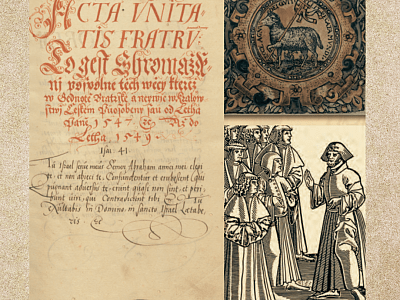 ACTA UNITA
TIS FRATRŪ
To gest Shromáždě
nj wospolné těch wěcý kterež
w Gednotě Bratrské a neywjc w Králow
stwj Cžeském Puosobeny sau od Letha
Páně 1547 Až do
Letha 1549
Isai: 41
Tu Israel serue meus Semen Abraham amici mei elegi
te et non abieci te. Confundentur et erubescent qui
pugnant aduersus te: erunt quasi non sint et peri
bunt uiri, qui contradicunt tibi. Et Tu
Exultabis in Domino, in sancto Israel Letabe
ris